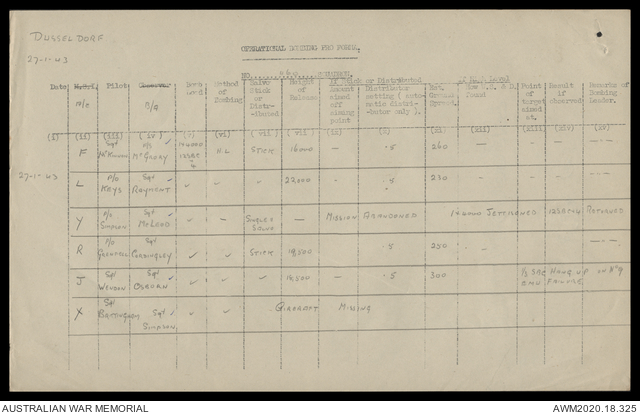 DUSSELDORF
27-1-43
OPERATIONAL BOMBING PRO FORMA.
NO. 460 SQUADRON.
If Stick or Distributed
Date
A/C
Pilot
B/A
Bomb Load
Method of Bombing
Salvo Stick or Distributed
Height of Release
Amount aimed off aiming point
Distributor setting (automatic distributor only).
Est. Ground Speed.
How U.S. & D. Found
Point of target aimed at.
Result if observed
Remarks of Bombing Leader.
(i) (ii) (iii) (iv) (v) (vi) (vii) (viii) (ix) (x) (xi) (xii) (xiii) (xiv) (xv)
F Sgt McKinnon McGrory ✓ H.L STICK 16000 - .5 260 - - - -.-
27-1-43 L P/O KEYS Sgt RAYMENT ✓ ✓ ✓ ✓ 22,000 .5 230 - - - -.-
Y P/O SIMPSON Sgt McLEOD ✓ ✓ - SINGLE & SALVO - MISSION ABANDONED JETTISONED RETURNED
R P/O Sgt ✓ ✓ ✓ STICK 18,500 .5 250 - - -.-
J Sgt WENDON Sgt OSBORN ✓ ✓ ✓ ✓ 18,500 - .5 300 HUNG UP ON No 9 FAILURE
X Sgt Sgt SIMPSON ✓ ✓ ✓ AIRCRAFT MISSING
AUSTRALIAN WAR MEMORIAL
AWM2020.18.325